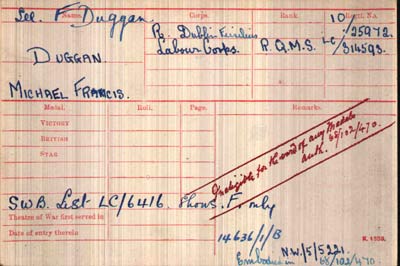 Name. Corps. Rank. Regtl. No.
See. F Duggan
DUGGAN
MICHAEL FRANCIS.
R. Dublin Fusiliers 10/25972.
Labour Corps. R.Q.M.S. LC/314593.
Medal. Roll. Page. Remarks.
VICTORY
BRITISH
STAR
Ineligible for the award of any medals
auth. 68/102/470.
SWB. List LC/6416. Shows. F. only
Theatre of War first served in
Date of entry therein
14636/1/B
K. 1380.
N.W./5/5221.
Embodied in 68/102/470.